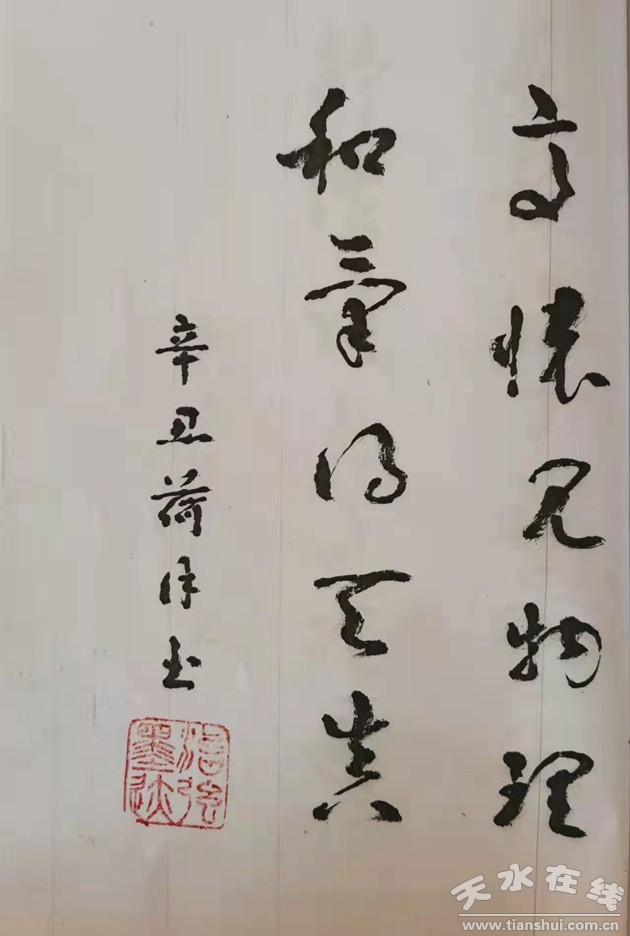 高怀见物理
和气得天真
辛丑荷月书
墨
天水在线
www.tianshui.com.cn